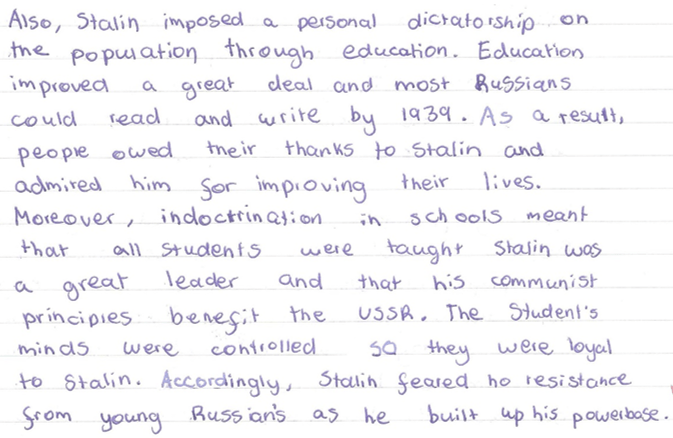 Also, Stalin imposed a personal dictatorship on
the population through education. Education
improved a great deal and most Russians
could read and write by 1939. As a result,
people owed their thanks to Stalin and
admired him for improving their lives.
Moreover, indoctrination in schools meant
that all students were taught Stalin was
a great leader and that his communist
principles benefit the USSR. The Student's
minds were controlled so they were loyal
to Stalin. Accordingly, Stalin feared no resistance
from young Russian's as he built up his powerbase.